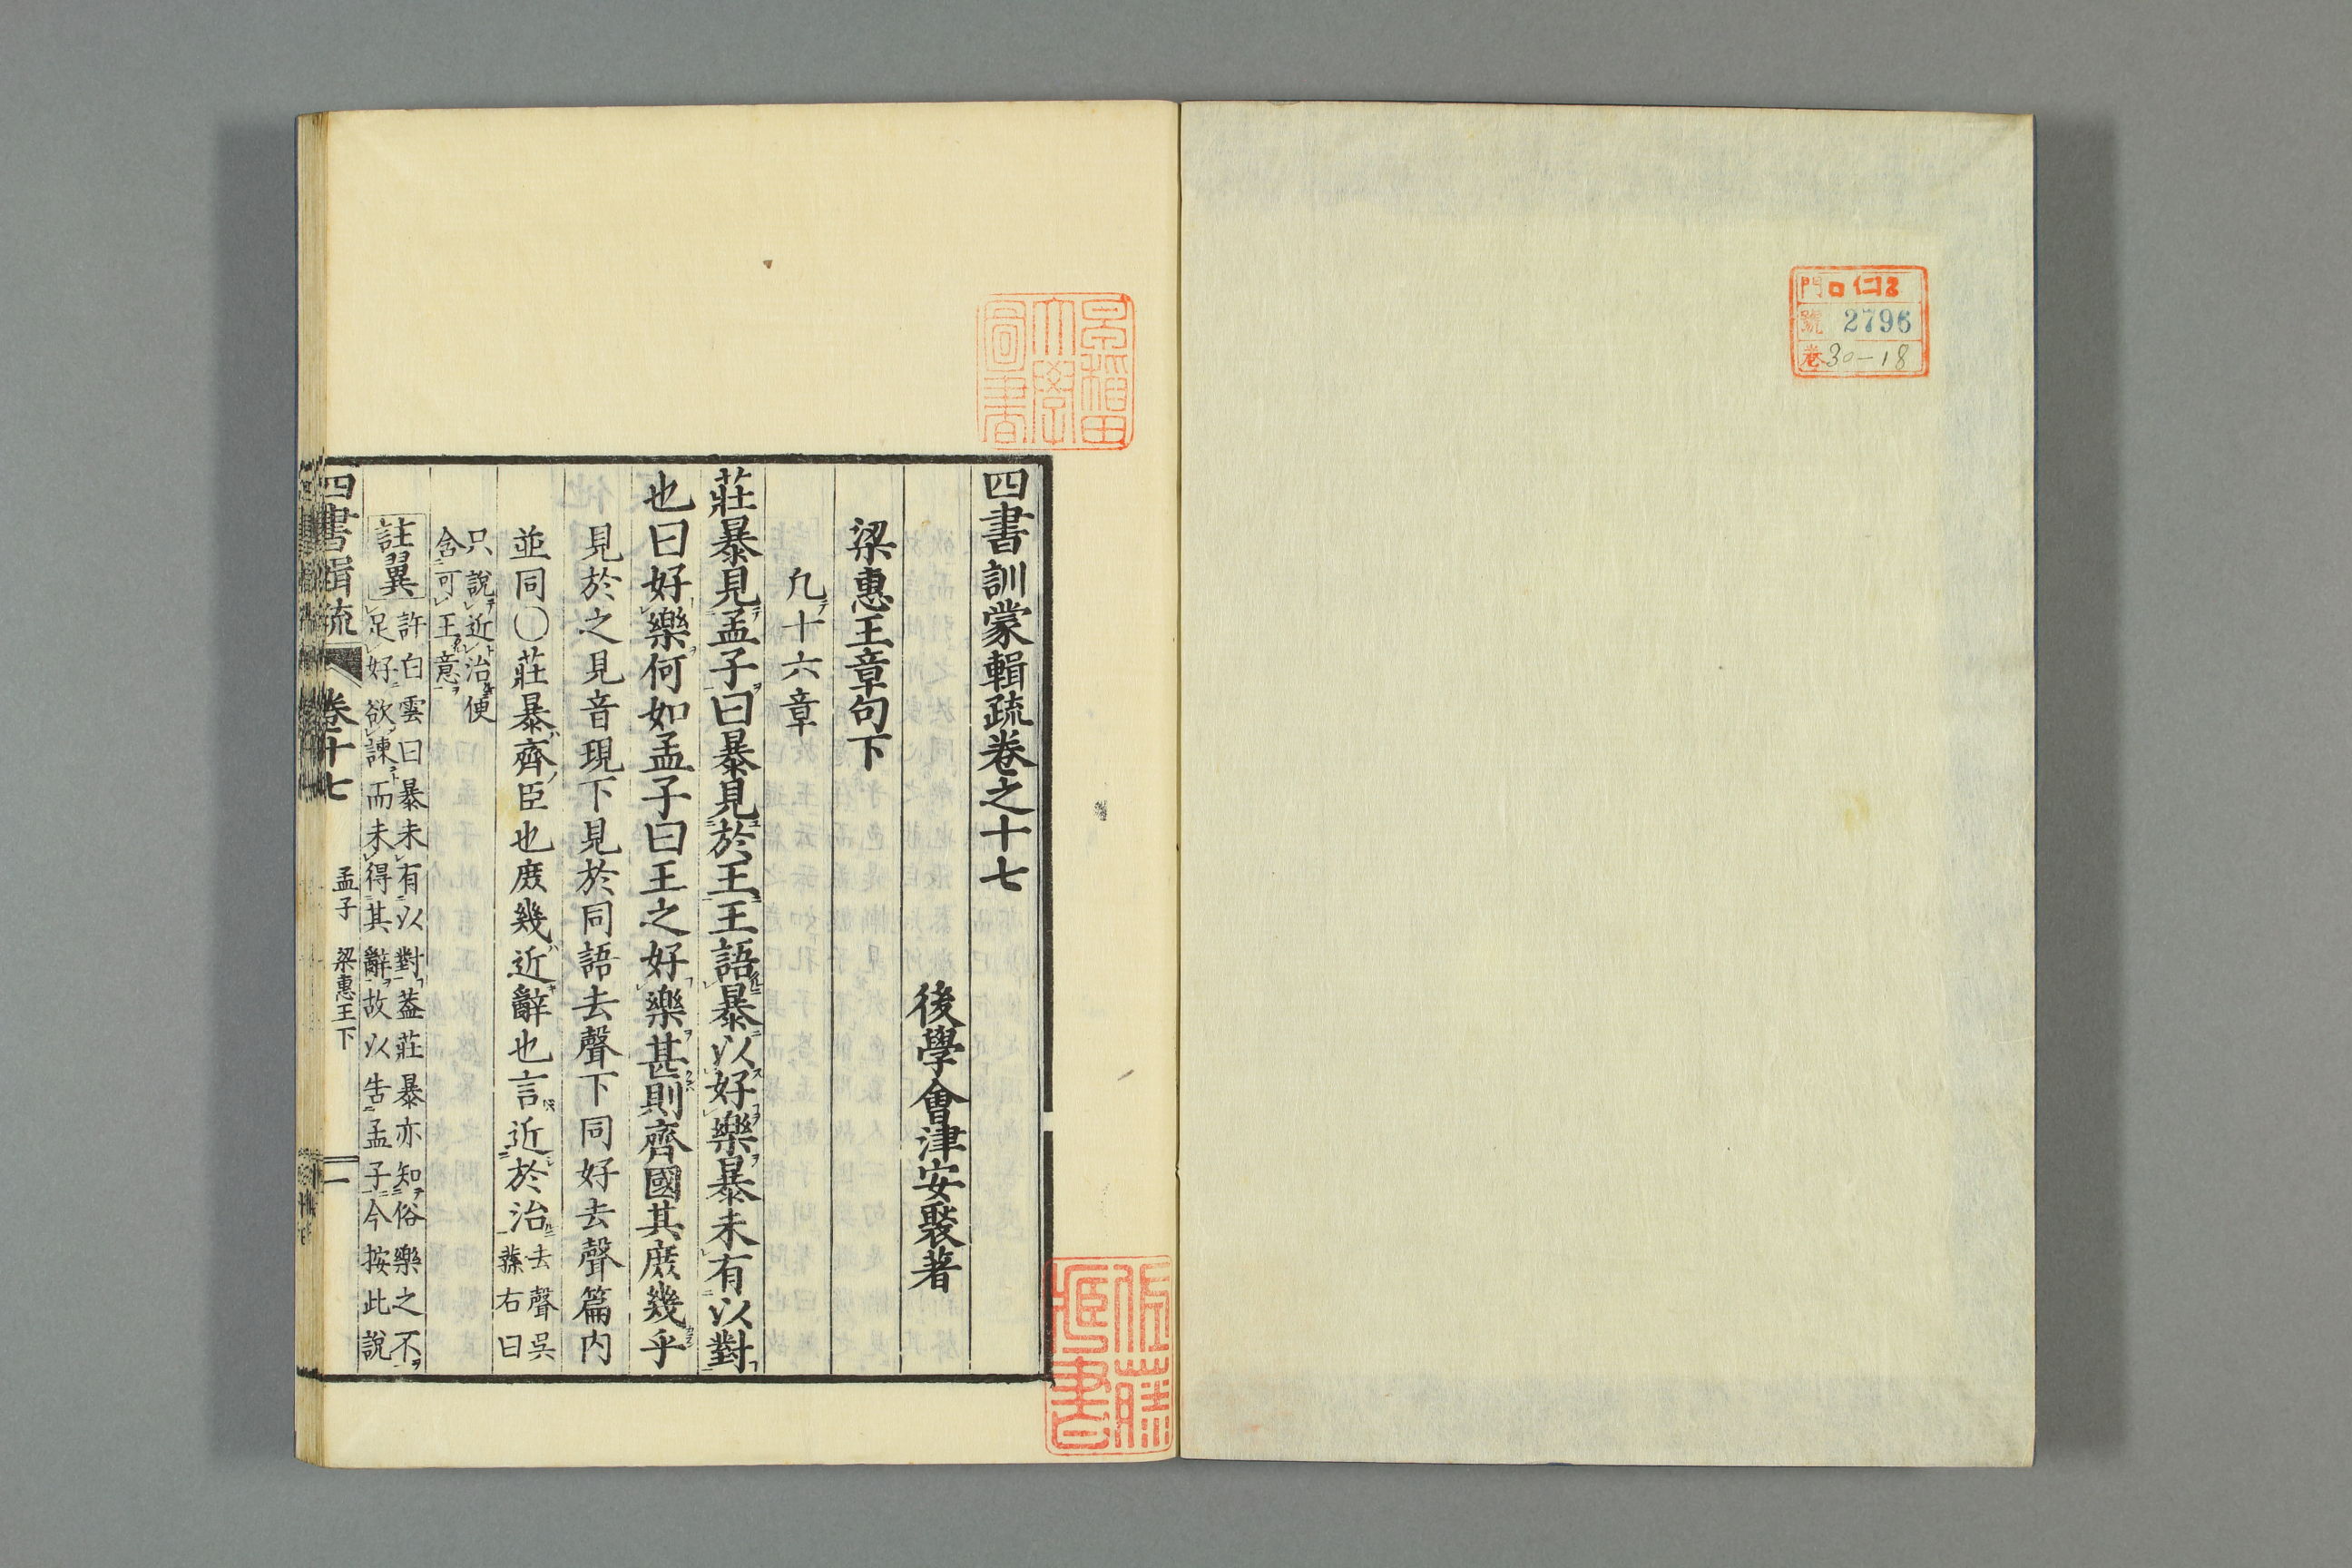 門 ロ 12
號 2796
卷 30-18
早稲田
大學
圖書
四書訓蒙輯疏卷之十七
後學會津安褧著
梁惠王章句下
凡十六章
莊暴見孟子曰暴見於王王語暴以好樂暴未有以對
也曰好樂何如孟子曰王之好樂甚則齊國其庶幾乎
見於之見音現下見於同語去聲下同好去聲篇内
並同〇莊暴齊臣也庶幾近辭也言近於治去聲吳
蓀右曰
只說近治便
含可王意
註翼許白雲曰暴未有以對蓋莊暴亦知俗樂之不
足好欲諫而未得其辭故以告孟子今按此說
四書輯疏 卷十七 孟子 梁惠王下 一
佐藤
書